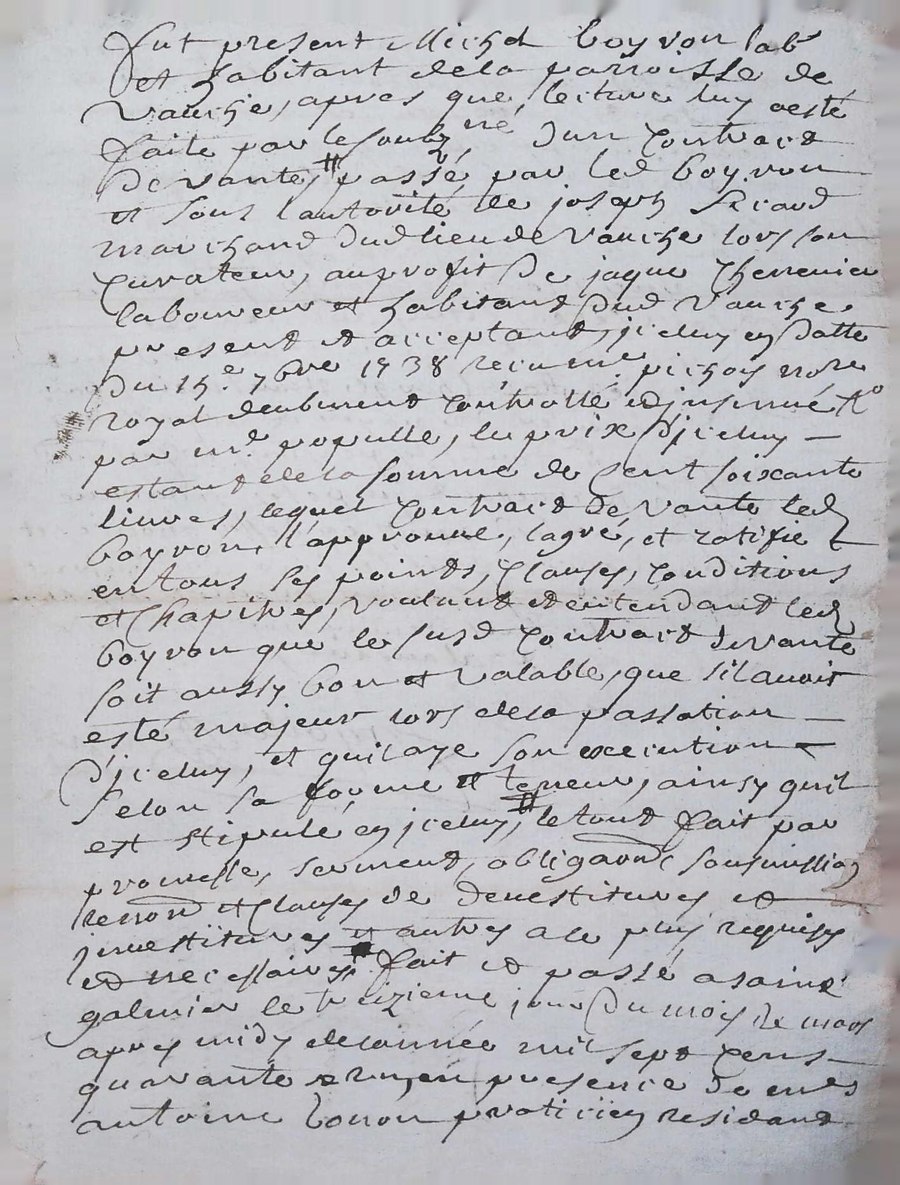 fut present Michel boyron lab.r
et habitant de la parroisse de
Vauche, apres que lecture luy a esté
faite par le soubz.né d'un contract
de vante, passé par led boyron
et sous l'autorité de joseph sicaud
marchand dud lieu de Vauche lors son
curateur, au profit de jaque Cherrenier
laboureur et habitant dud Vauche
present et acceptant, jceluy en datte
du 15.e 7bre 1738 receu me pichois no.re
royal deubment controllé et jnsinué
par m.e populle, le prix d'jceluy
estant de la somme de cent soixante
liures, lequel contract de vante led
boyron, l'approuue, l'agré, et ratifie
en tous ses points, clauses, conditions
et Chapitres, voulant et entendant led
boyron que le susd contract de vante
soit aussy bon et valable, que s'il auoit
esté majeur lors de la passation
d'jceluy, et qu'il aye son execution
selon sa forme et teneur, ainsy qu'il
est stipulé en jceluy, le tout fait par
promesse, serment, obligaon, sousmission
renond et clauses de deuestitures et
jnuestitures et autres a ce plus requises
et necessaires fait et passé a saint
galmier le treizieme jour du mois de mars
apres midy de l'année mil sept cens
quarante en presence de
antoine bonon praticien residant